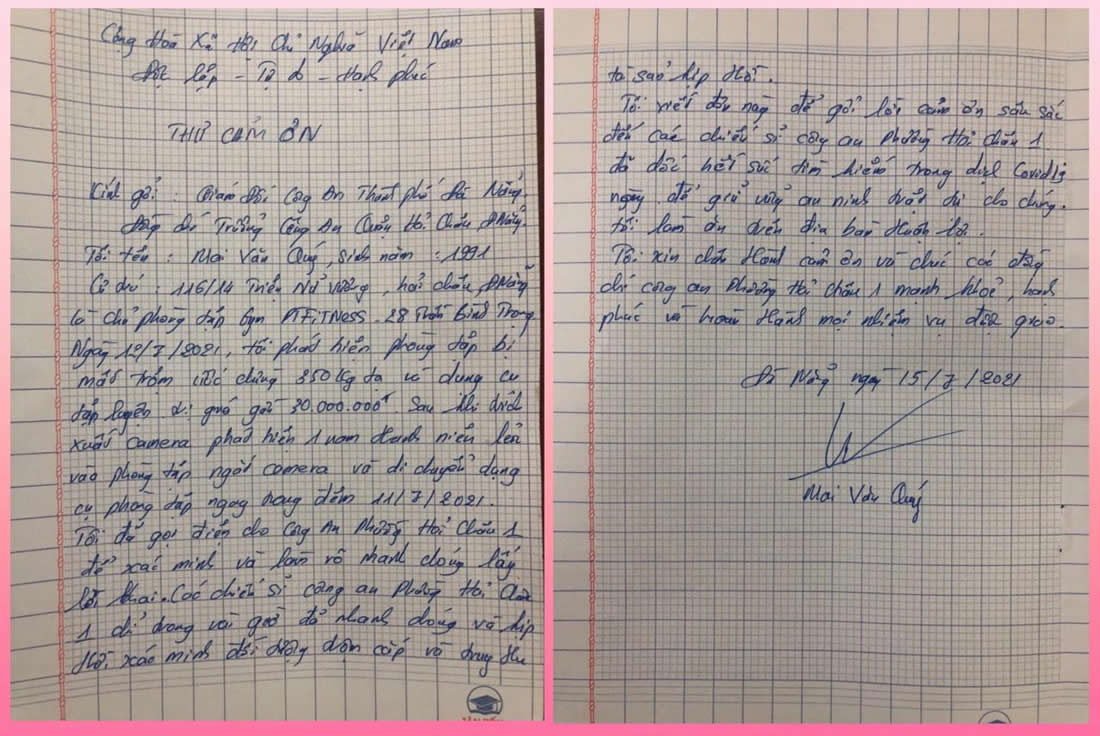 Cộng Hoà Xã Hội Chủ Nghĩa Việt Nam
Độc lập - Tự do - Hạnh phúc
THƯ CẢM ƠN
Kính gởi : Giám Đốc Công An Thành phố Đà Nẵng.
Đồng chí Trưởng Công An Quận Hải Châu Đ Nẵng.
Tôi tên : Mai Văn Quý, sinh năm : 1991
Cư trú : 116/14 Triệu Nữ Vương, hải châu Đ Nẵng
là chủ phòng tập Gym PTFITNESS. 28 Thái Bình Trong
Ngày 12/7/2021, tôi phát hiện phòng tập bị
mất trộm ước chừng 350kg tạ và dụng cụ
tập luyện trị giá gần 30.000.000đ. Sau khi trích
xuất camera phát hiện 1 nam thanh niên lẻn
vào phòng tập ngắt camera và di chuyển dụng
cụ phòng tập ngay trong đêm 11/7/2021.
Tôi đã gọi điện cho Công An Phường Hải Châu 1
để xác minh và làm rõ nhanh chóng lấy
lời khai. Các chiến sĩ công an phường Hải Châu
1 chỉ trong vài giờ đã nhanh chóng và kịp
thời xác minh đối tượng trộm cắp và truy thu
tài sản kịp thời.
Tôi viết đơn này để gởi lời cảm ơn sâu sắc
đến các chiến sĩ công an phường Hải Châu 1
đã dốc hết sức tìm kiếm trong dịch Covid19
ngay để giữ vững an ninh trật tự cho chúng.
tôi làm ăn trên địa bàn thuận lợi.
Tôi xin chân thành cảm ơn và chúc các đồng
chí công an phường Hải Châu 1 mạnh khoẻ, hạnh
phúc và hoàn thành mọi nhiệm vụ được giao.
Đà Nẵng ngày 15/7/2021
Mai Văn Quý